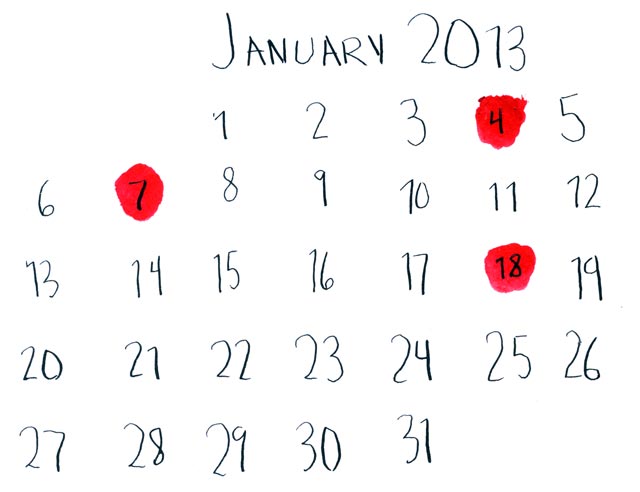 JANUARY 2013
1 2 3 4 5
6 7 8 9 10 11 12
13 14 15 16 17 18 19
20 21 22 23 24 25 26
27 28 29 30 31